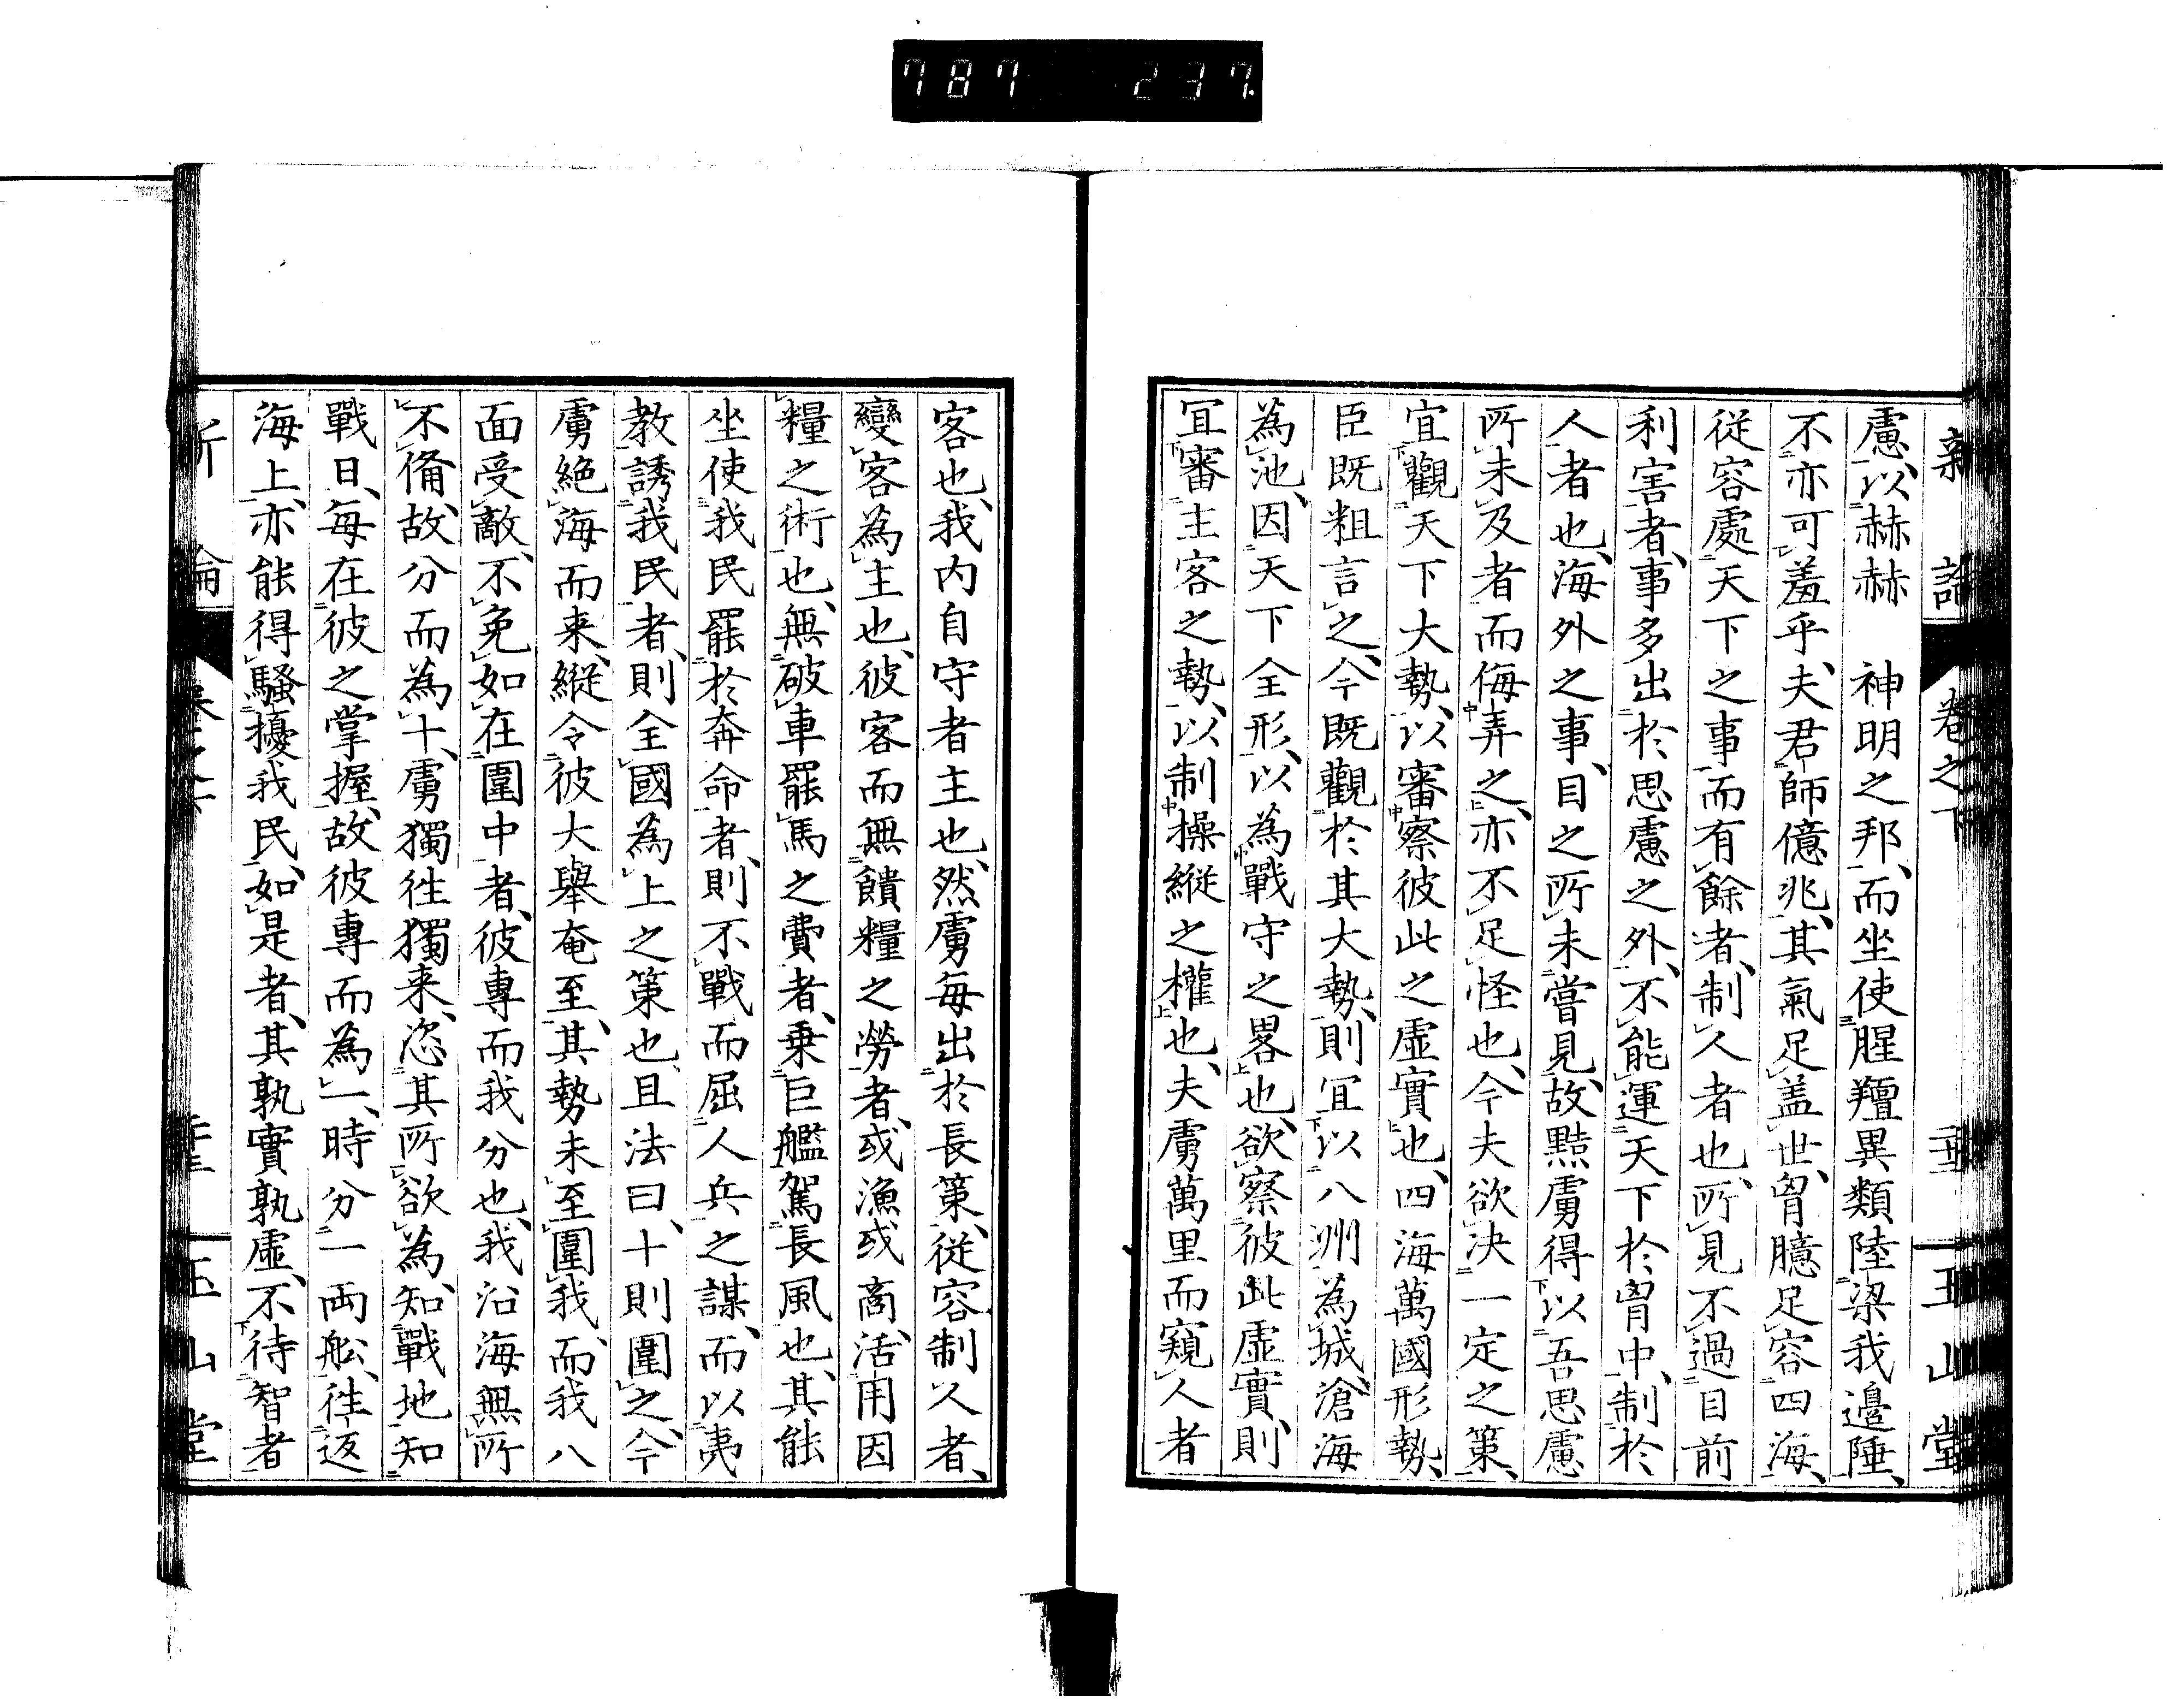 787 237
新論 卷之下 玉山堂
慮、以赫赫 神明之邦、而坐使腥羶異類陸梁我邊陲、
不亦可羞乎、夫君師億兆、其氣足蓋世、胷臆足容四海、
從容處天下之事、而有餘者、制人者也、所見不過目前
利害者、事多出於思慮之外、不能運天下於胷中、制於
人者也、海外之事、目之所未嘗見、故黠虜得以吾思慮
所未及者、而侮弄之、亦不足怪也、今夫欲決一定之策、
宜觀天下大勢、以審察彼此之虛實也、四海萬國形勢、
臣既粗言之、今既觀於其大勢、則冝以八洲為城、滄海
為池、因天下全形、以為戰守之畧也、欲察彼此虛實、則
冝審主客之勢、以制操縱之權也、夫虜萬里而窺人者
客也、我内自守者主也、然虜每出於長策、從容制人者、
變客為主也、彼客而無饋糧之勞者、或漁或商、活用因
糧之術也、無破車罷馬之費者、乗巨艦駕長風也、其能
坐使我民罷於奔命者、則不戰而屈人兵之謀、而以夷
教誘我民者、則全國為上之策也、且法曰、十則圍之、今
虜絶海而来、縱令彼大舉奄至、其勢未至圍我、而我八
面受敵、不免如在圍中者、彼專而我分也、我沿海無所
不備、故分而為十、虜獨徃獨来、恣其所欲為、知戰地知
戰日、每在彼之掌握、故彼專而為一、時分一両舩、徃返
海上、亦能得騷擾我民、如是者、其孰實孰虛、不待智者
新論 玉山堂